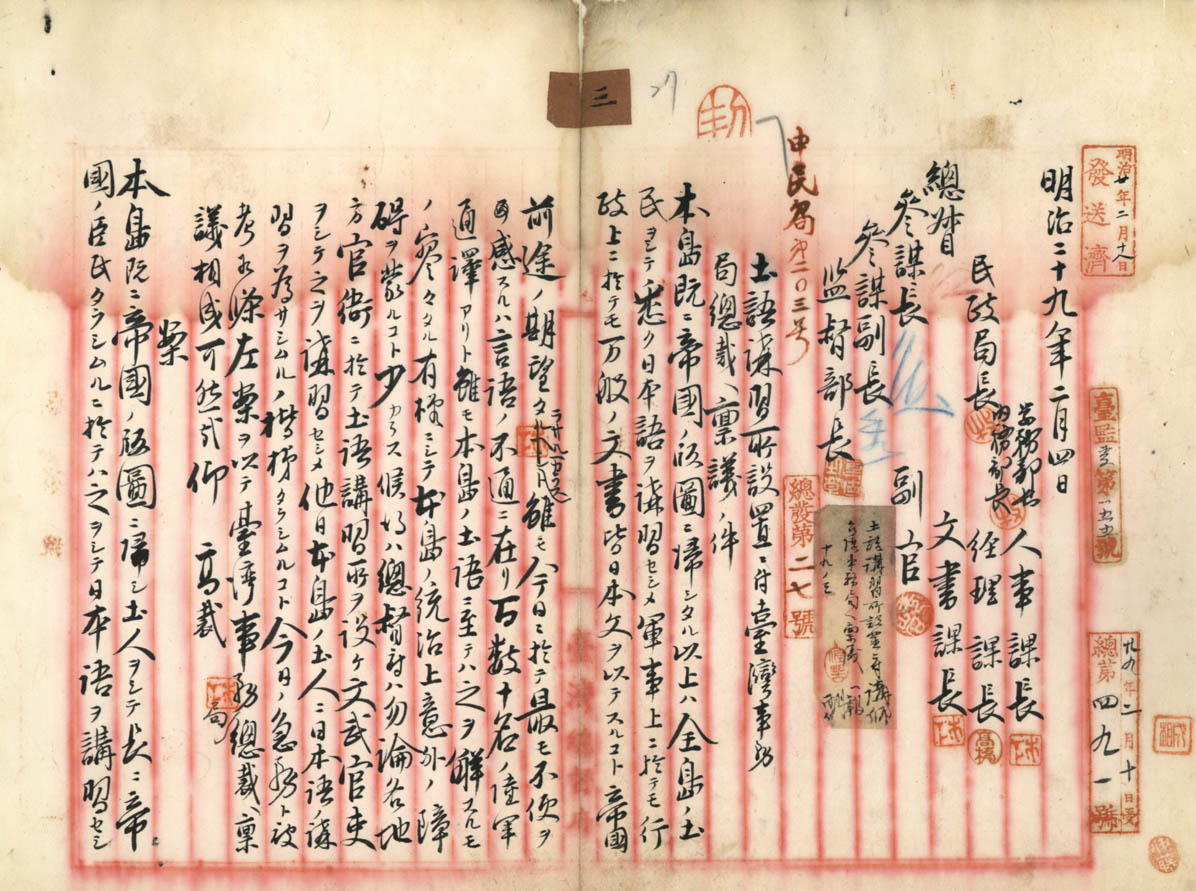 明治廿年二月十八日
發送濟
臺監書第一五五號
廿九年二月十日受
總第四九一號
明治二十九年二月四日
學務部長
內務部長
人事課長
民政局長
經理課長
文書課長
總督
副官
參謀長
參謀副長
監督部長
三
總發第二七號
申民局第二〇三号
土語講習所設置ニ付臺灣事務
局總裁ヘ稟議ノ件
本島既ニ帝國ノ版圖ニ歸シタル以上ハ全島ノ土
民ヲシテ悉ク日本語ヲ講習セシメ軍事上ニ於テモ行
政上ニ於テモ万般ノ文書皆日本文ヲ以テスルコト帝國
前途ノ期望タル
雖モ今日ニ於テ最モ不便ヲ
感スルハ言語ノ不通ニ在リ百数十名ノ陸軍
通譯アリト雖モ本島ノ土語ニ至テハ之ヲ解スルモ
ノ寥々タル有様ニシテ本島ノ統治上意外ノ障
碍ヲ蒙ルコト少カラス候ハ總督府ハ勿論各地
方官衙ニ於テ土語講習所ヲ設ケ文武官吏
ヲシテ之ヲ講習セシメ他日本島ノ土人ニ日本語ノ講
習ヲ為サシムルノ楷梯タラシムルコト今日ノ急務ト被
考候條左案ヲ以テ臺灣事務總裁ヘ稟
議相成可然哉仰高裁
案
本島既ニ帝國ノ版圖ニ歸シ土人ヲシテ長ニ帝
國ノ臣民タラシムルニ於テハ之ヲシテ日本語ヲ講習セシ